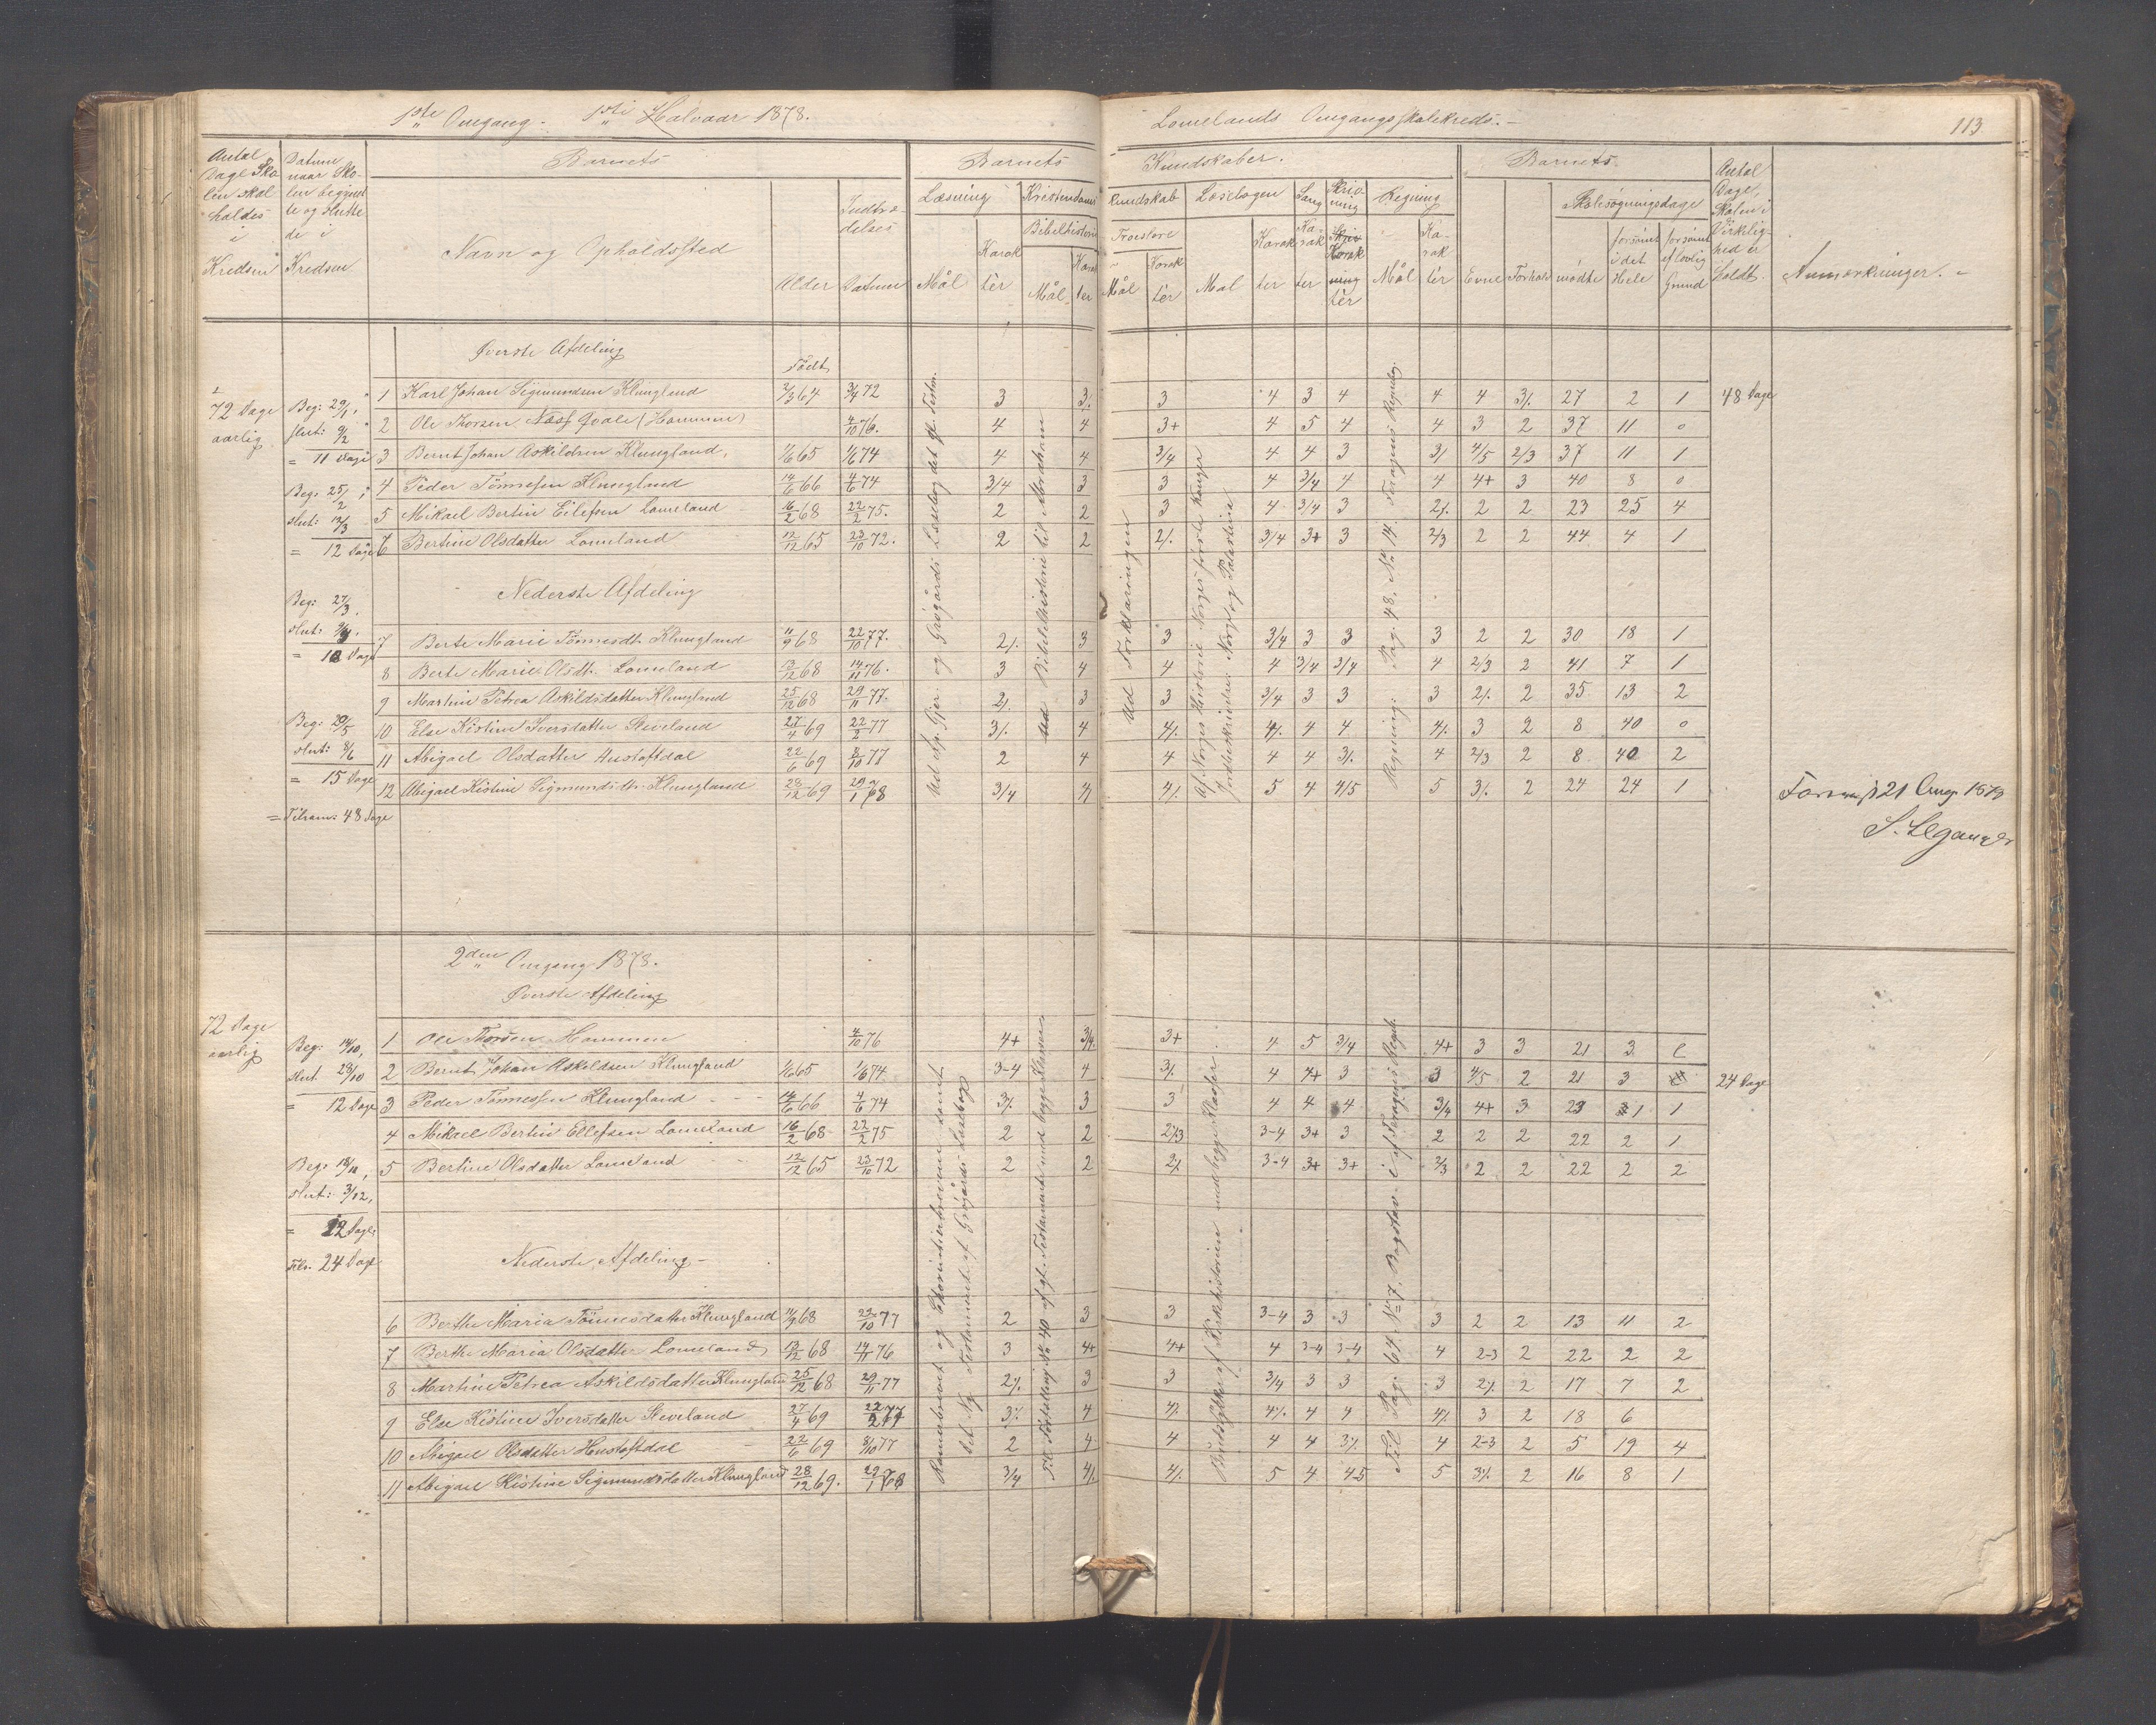 1ste Omgang - 1ste Halvaar 1878.
Lomelands Omgangsskolekreds. -
113
Antal Dage Skolen skal holdes i Kredsen
Datum naar Skolen begyndte og sluttede i Kredsen
Barnets
Navn og Opholdssted
Alder
Indtrædelses Datum
Barnets
Kundskaber.
Læsning
Mål
Karakter
Kristendoms
kundskab
Bibelhistorie
Mål
Karakter
Troeslære
Mål
Karakter
Læsebogen
Mal
Karakter
Sang
Karakter
Skrivning
Karakter
Regning
Mål
Karakter
Barnets
Evne
Forhold
Skolesøgningsdage
mødte
forsømt i det Hele
forsømt af lovlig Grund
Antal Dage, Skolen i Virkelighed er holdt.
Anmærkninger. -
Øverste Afdeling
Født
72 Dage aarlig
Beg: 29/1,
slut: 9/2
= 11 Dage
Beg: 25/2
slut: 13/3
= 12 Dage
Beg: 27/3.
slut: 9/4.
= 10 Dage
Beg: 20/5
slut: 8/6
= 15 Dage
= Tilsam: 48 Dage
1 Karl Johan Sigmundsen Klungland 2/3 64 3/4 72 3 3/. 3 4 3 4 4 4 3/. 27 2 1 48 Dage
2 Ole Thorsen Næss Qvale (Hammen) 4/10 76. 4 4 3+ 4 5 4 4 3 2 37 11 0
3 Bernt Johan Askildsen Klungland, 1/6 65 1/6 74 4 4 3/4 4 4 3 3/ 4/5 2/3 37 11 1
4 Peder Tönnesen Klungland 14/6 66 4/6 74 3/4 3 3 4 3/4 4 4 4+ 3 40 8 0
5 Mikael Bertin Eilefsen Lomeland 16/2 68 22/2 75. 2 2 3 4 3/4 3 2/. 2 2 23 25 4
6 Bertine Olsdatter Lomeland 12/12 65 23/10 72. 2 2 2/. 3/4 3+ 3 2/3 2 2 44 4 1
Nederste Afdeling
7 Berte Marie Tönnesdt. Klungland 11/9 68 22/10 77. 2/. 3 3 3/4 3 3 3 2 2 30 18 1
8 Berte Marie Olsdt. Lomeland 13/12 68 14/11 76. 3 4 4 4 3/4 3/4 4 2/3 2 41 7 1
9 Martine Petrea Askildsdatter Klungland 25/12 68 29/11 77. 2/. 3 3 3/4 3 3 3 2/. 2 35 13 2
10 Else Kistine Iversdatter Steveland 27/4 69 22/2 77 3/. 4 4/. 4/. 4 4 4/. 3 2 8 40 0
11 Abigael Olsdatter Hustoftdal 22/6 69 8/10 77 2 4 4 4 4 3/. 4 2/3 2 8 40 2
12 Abigael Kistine Sigmundsdtr. Klungland 28/12 69 29/1 78 3/4 4/ 4/. 5 4 4/5 5 3/. 2 24 24 1
Ud Ap. Gjer. og Grøgårds Læsebog det gl. Testm.
Ud Bibelhistorie til Abraham
Ud Forklaringen
Af Norges Historie Norges første Konger
Jordbeskrivelse: Norge og Palæstina
Regning: Pag. 48, No 14. Foragnes Regnebog.
21 Aug 1878
2den Omgang 1878.
Øverste Afdeling
72 Dage aarlig
Beg: 14/10,
slut. 28/10
= 12 Dage
Beg: 18/11,
slut: 3/12,
= 12 Dage
Tils. 24 Dage
1 Ole Thorsen Hammen 4/10 76 4+ 3/4. 3+ 4 5 3/4 4+ 3 3 21 3
2 Bernt Johan Askildsen Klungland 1/6 65 1/6 74 3-4 4 3/. 4 4+ 3 3 4/5 2 21 3 24 Dage
3 Peder Tönnessen Klungland - - - 14/6 66 4/6 74 3/. 3 3 4 4 4 3/4 4+ 3 23 1 1
4 Mikael Bertin Ellefsen Lomeland 16/2 68 22/2 75 2 2 2/3 3-4 3+ 3 2 2 2 22 2 1
5 Bertine Olsdatter Lomeland - - 12/12 65 23/10 72 2 2 2/. 3-4 3+ 3+ 2/3 2 2 22 2 2
Nederste Afdeling -
6 Berthe Maria Tönnesdatter Klungland 11/9 68 22/10 77 2 3 3 3-4 3 3 3 2 2 13 11 2
7 Berthe Maria Olsdatter Lomeland 13/12 68 14/11 76 3 4+ 4+ 4 3-4 3-4 4 2-3 2 22 2 2
8 Martine Petrea Askildsdatter Klungland 25/12 68 29/11 77 2/. 3 3 3/4 3 3 3 2/. 2 17 7 2
9 Else Kistine Iversdatter Steveland 27/4 69 22/2 77 3/. 4 4/. 4/. 4 4 4/. 3 2 18 6
10 Abigael Olsdatter Hustoftdal 22/6 69 8/10 77 2 4 4 4 4 3/. 4 2-3 2 5 19 4
11 Abigael Kistine Sigmundsdatter Klungland 28/12 69. 29/1 78 3/4 4/. 4/. 5 4 4 5 5 3/. 2 16 8 1
Romerbrevet og Ekorintierbrevene samt
det Ny Testamentet af Grøgårds Læsebog
Til Fortælling No 40 af gl. Testament med begge Klasser
Brudstykke af Kirkehistorien med begge Klasser
Til Pag. 64. No 7, Bogstav i af Foragnes Regneb.